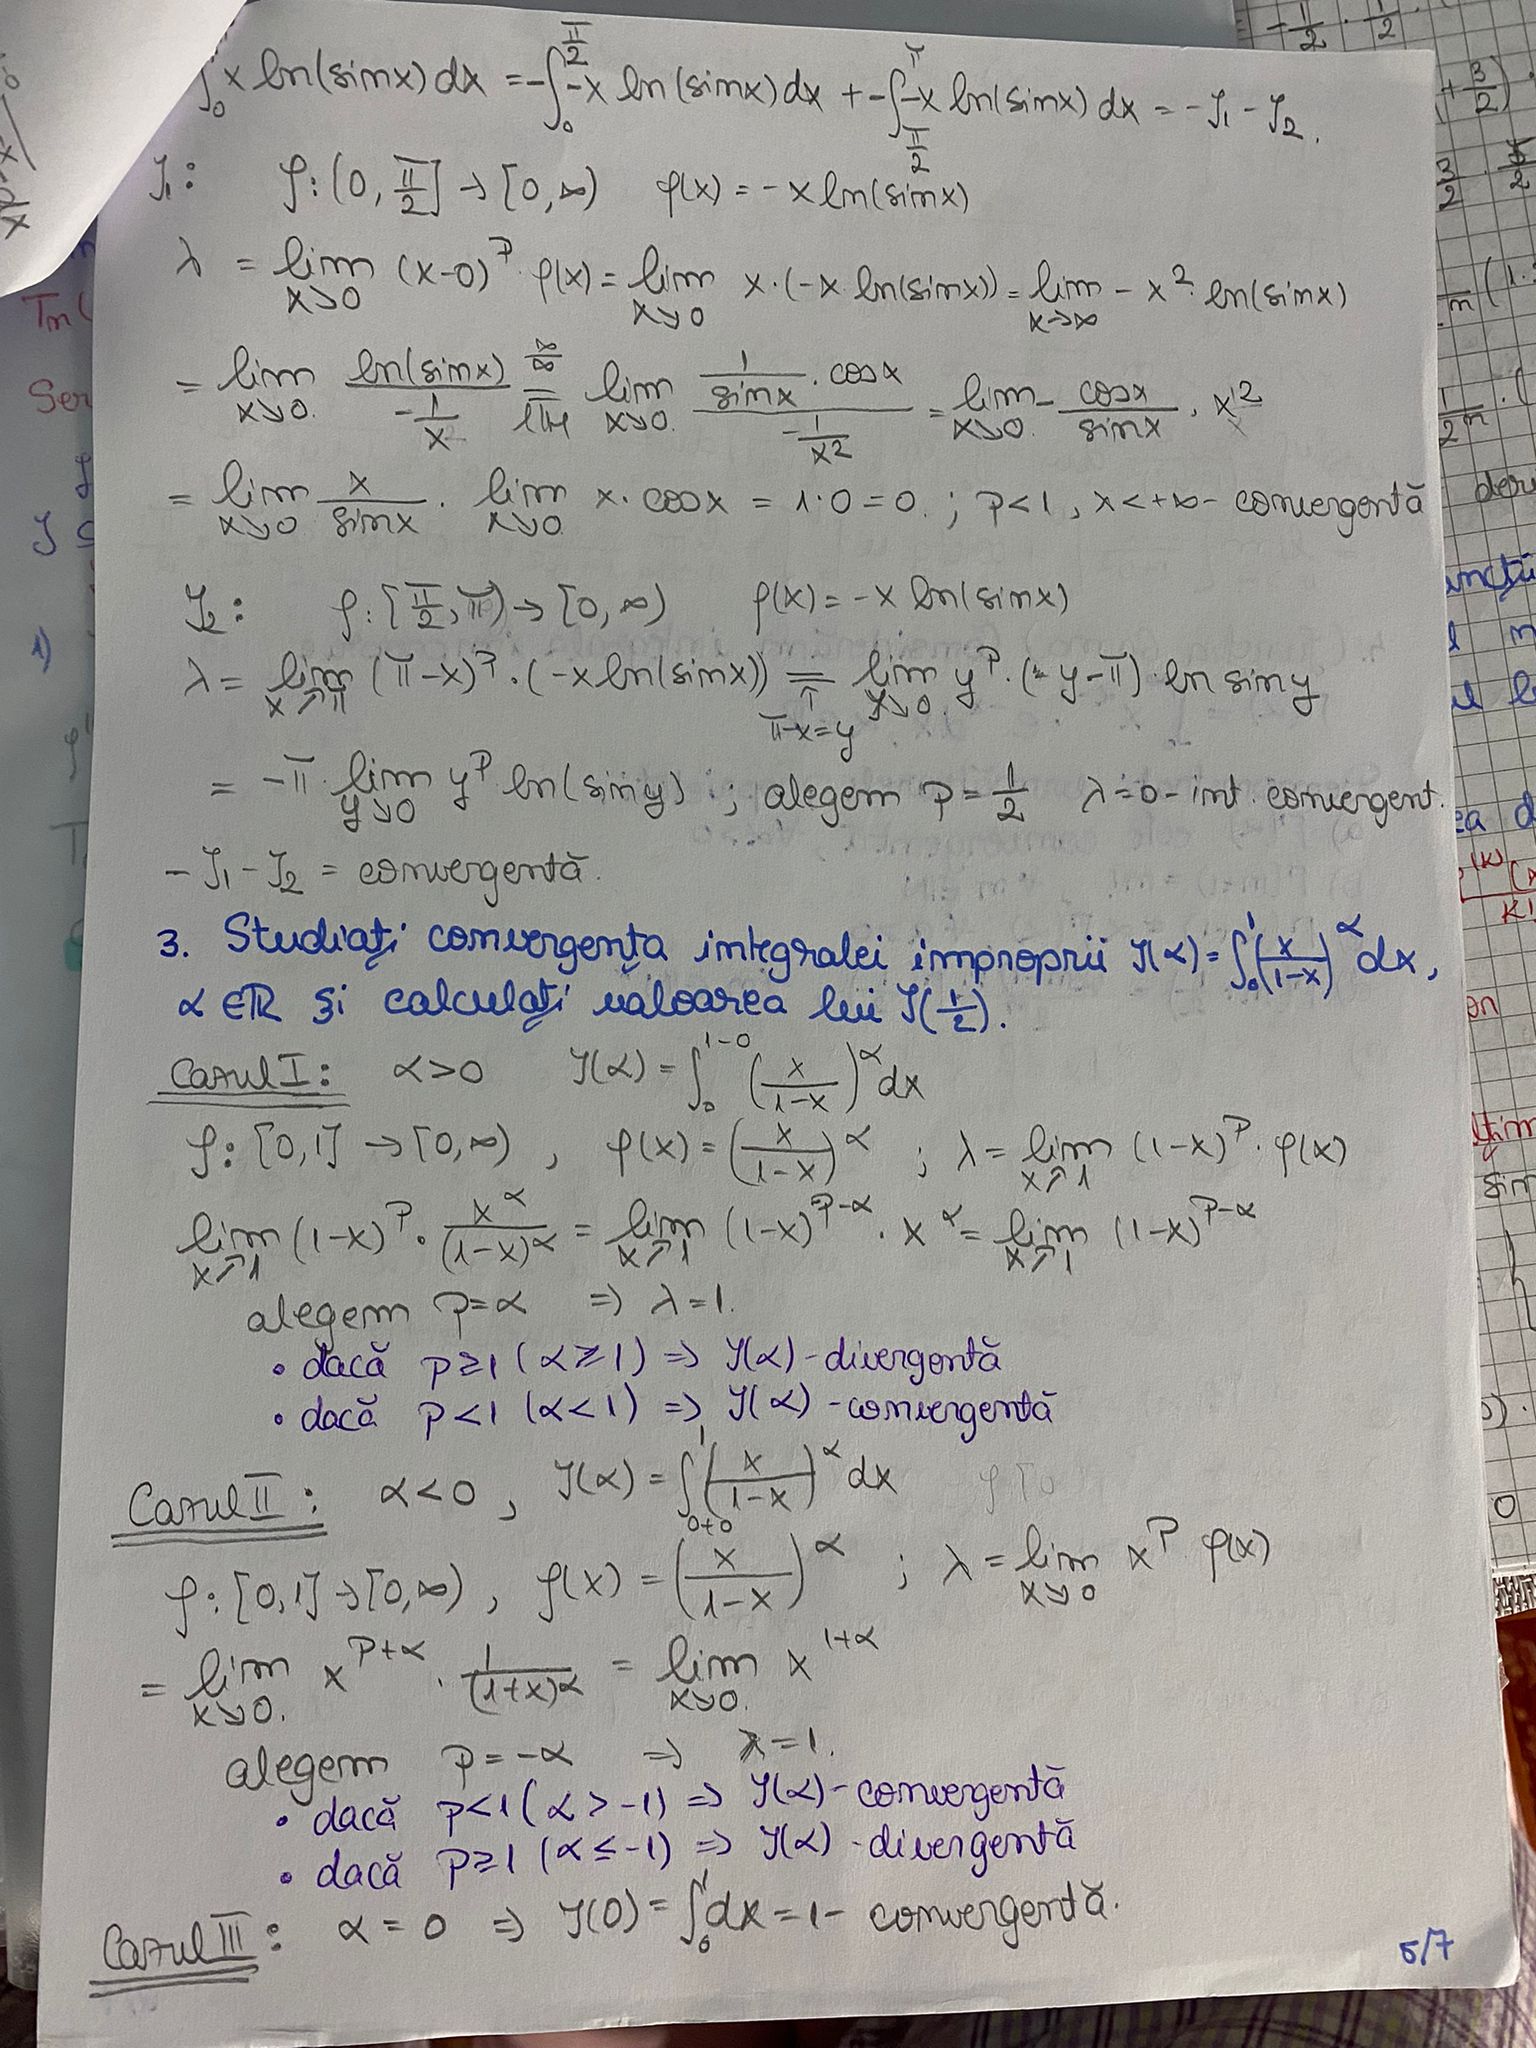 ∫₀ x ln(sinx) dx = -∫₀^{π/2} -x ln(sinx) dx + -∫_{π/2}^{π} -x ln(sinx) dx = -J₁ - J₂.
J₁: f: (0, π/2] → [0, ∞) f(x) = -x ln(sinx)
λ = lim_{x↘0} (x-0)^p · f(x) = lim_{x↘0} x·(-x ln(sinx)) = lim_{x→∞} - x² ln(sinx)
= lim_{x↘0} ln(sinx)/(-1/x) =^{∞/∞}_{l'H} lim_{x↘0} (1/sinx · cosx)/(-1/x²) = lim_{x↘0} - cosx/sinx · x²
= lim_{x↘0} x/sinx · lim_{x↘0} x·cosx = 1·0 = 0 ; p<1, λ<+∞ - convergentă
J₂: f: [π/2, π) → [0, ∞) f(x) = -x ln(sinx)
λ = lim_{x↗π} (π-x)^p · (-x ln(sinx)) =_{π-x=y} lim_{y↘0} y^p · (y-π) ln siny
= -π lim_{y↘0} y^p ln(siny) ; alegem p = 1/2 λ=0 - int. convergent.
-J₁ - J₂ = convergentă.
3. Studiați convergența integralei improprii J(α) = ∫₀¹ (x/(1-x))^α dx,
α∈ℝ și calculați valoarea lui J(1/2).
Cazul I: α>0 J(α) = ∫₀^{1-0} (x/(1-x))^α dx
f: [0,1] → [0,∞), f(x) = (x/(1-x))^α ; λ = lim_{x↗1} (1-x)^p · f(x)
lim_{x↗1} (1-x)^p · x^α/(1-x)^α = lim_{x↗1} (1-x)^{p-α} · x^α = lim_{x↗1} (1-x)^{p-α}
alegem p=α ⇒ λ=1.
• dacă p≥1 (α≥1) ⇒ J(α) - divergentă
• dacă p<1 (α<1) ⇒ J(α) - convergentă
Cazul II: α<0, J(α) = ∫_{0+0}^1 (x/(1-x))^α dx
f: [0,1] → [0,∞), f(x) = (x/(1-x))^α ; λ = lim_{x↘0} x^p f(x)
= lim_{x↘0} x^{p+α} · 1/(1+x)^α = lim_{x↘0} x^{1+α}
alegem p=-α ⇒ λ=1.
• dacă p<1 (α>-1) ⇒ J(α) - convergentă
• dacă p≥1 (α≤-1) ⇒ J(α) - divergentă
Cazul III: α=0 ⇒ J(0) = ∫₀¹ dx = 1 - convergentă.
5/7